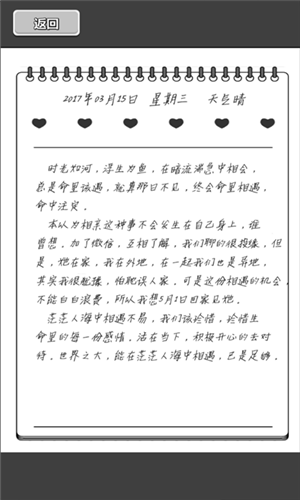 返回
2017年03月15日 星期三 天气晴
时光如河，浮生为鱼，在暗流湍急中相会，
总是命里该遇，就算昨日不见，终会命里相遇，
命中注定。
本以为相亲这种事不会发生在自己身上，谁
曾想，加了微信，互相了解，我们聊的很投缘。但
是，她在家，我在外地，在一起我们也是异地。
其实我很犹豫，怕耽误人家，可是这份相遇的机会
不能白白浪费，所以我想5月1日回家见她。
茫茫人海中相遇不易，我们该珍惜，珍惜生
命里的每一份感情，活在当下，积极开心的去对
待。世界之大，能在茫茫人海中相遇，已是足够。